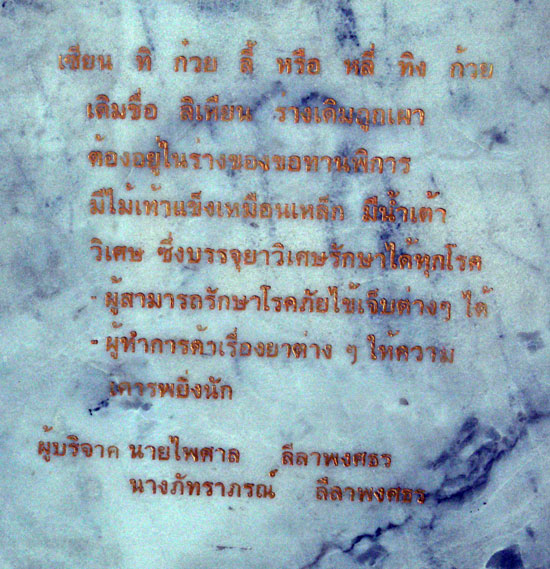 เซียน ทิ ก๋วย ลี้ หรือ หลี่ ทิง ก้วย
เดิมชื่อ ลิเทียน ร่างเดิมถูกเผา
ต้องอยู่ในร่างของขอทานพิการ
มีไม้เท้าแข็งเหมือนเหล็ก มีน้ำเต้า
วิเศษ ซึ่งบรรจุยาวิเศษรักษาได้ทุกโรค
- ผู้สามารถรักษาโรคภัยไข้เจ็บต่างๆ ได้
- ผู้ทำการค้าเรื่องยาต่าง ๆ ให้ความ
เคารพยิ่งนัก
ผู้บริจาค นายไพศาล ลีลาพงศธร
นางภัทราภรณ์ ลีลาพงศธร